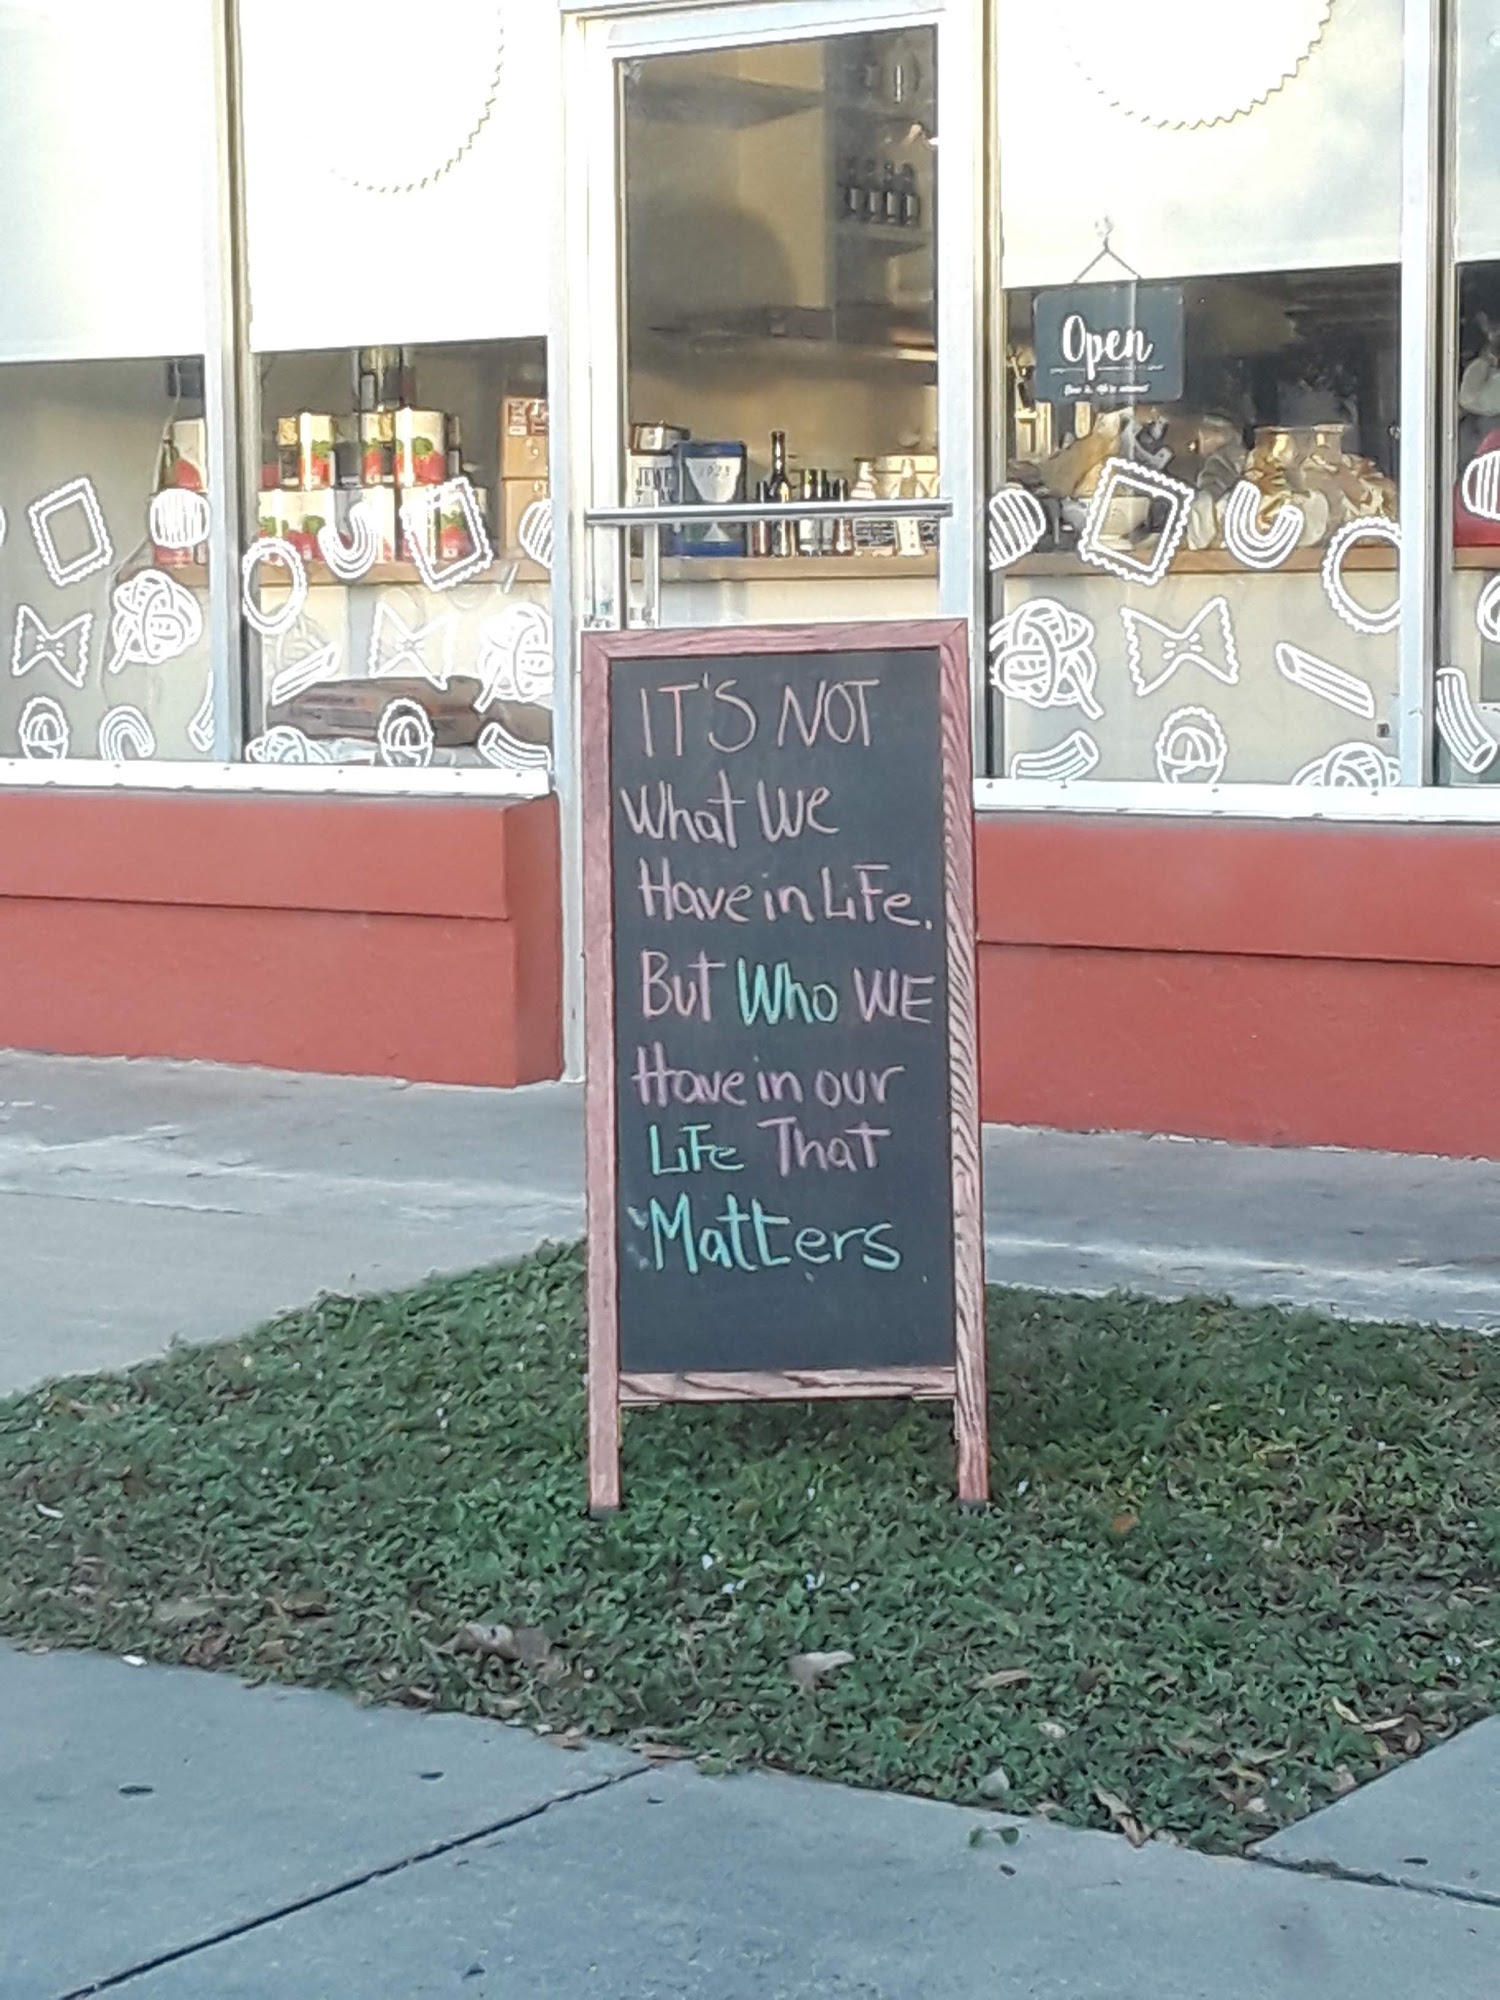 Open
IT'S NOT
What We
Have in LiFe.
But Who WE
Have in our
LiFe That
Matters